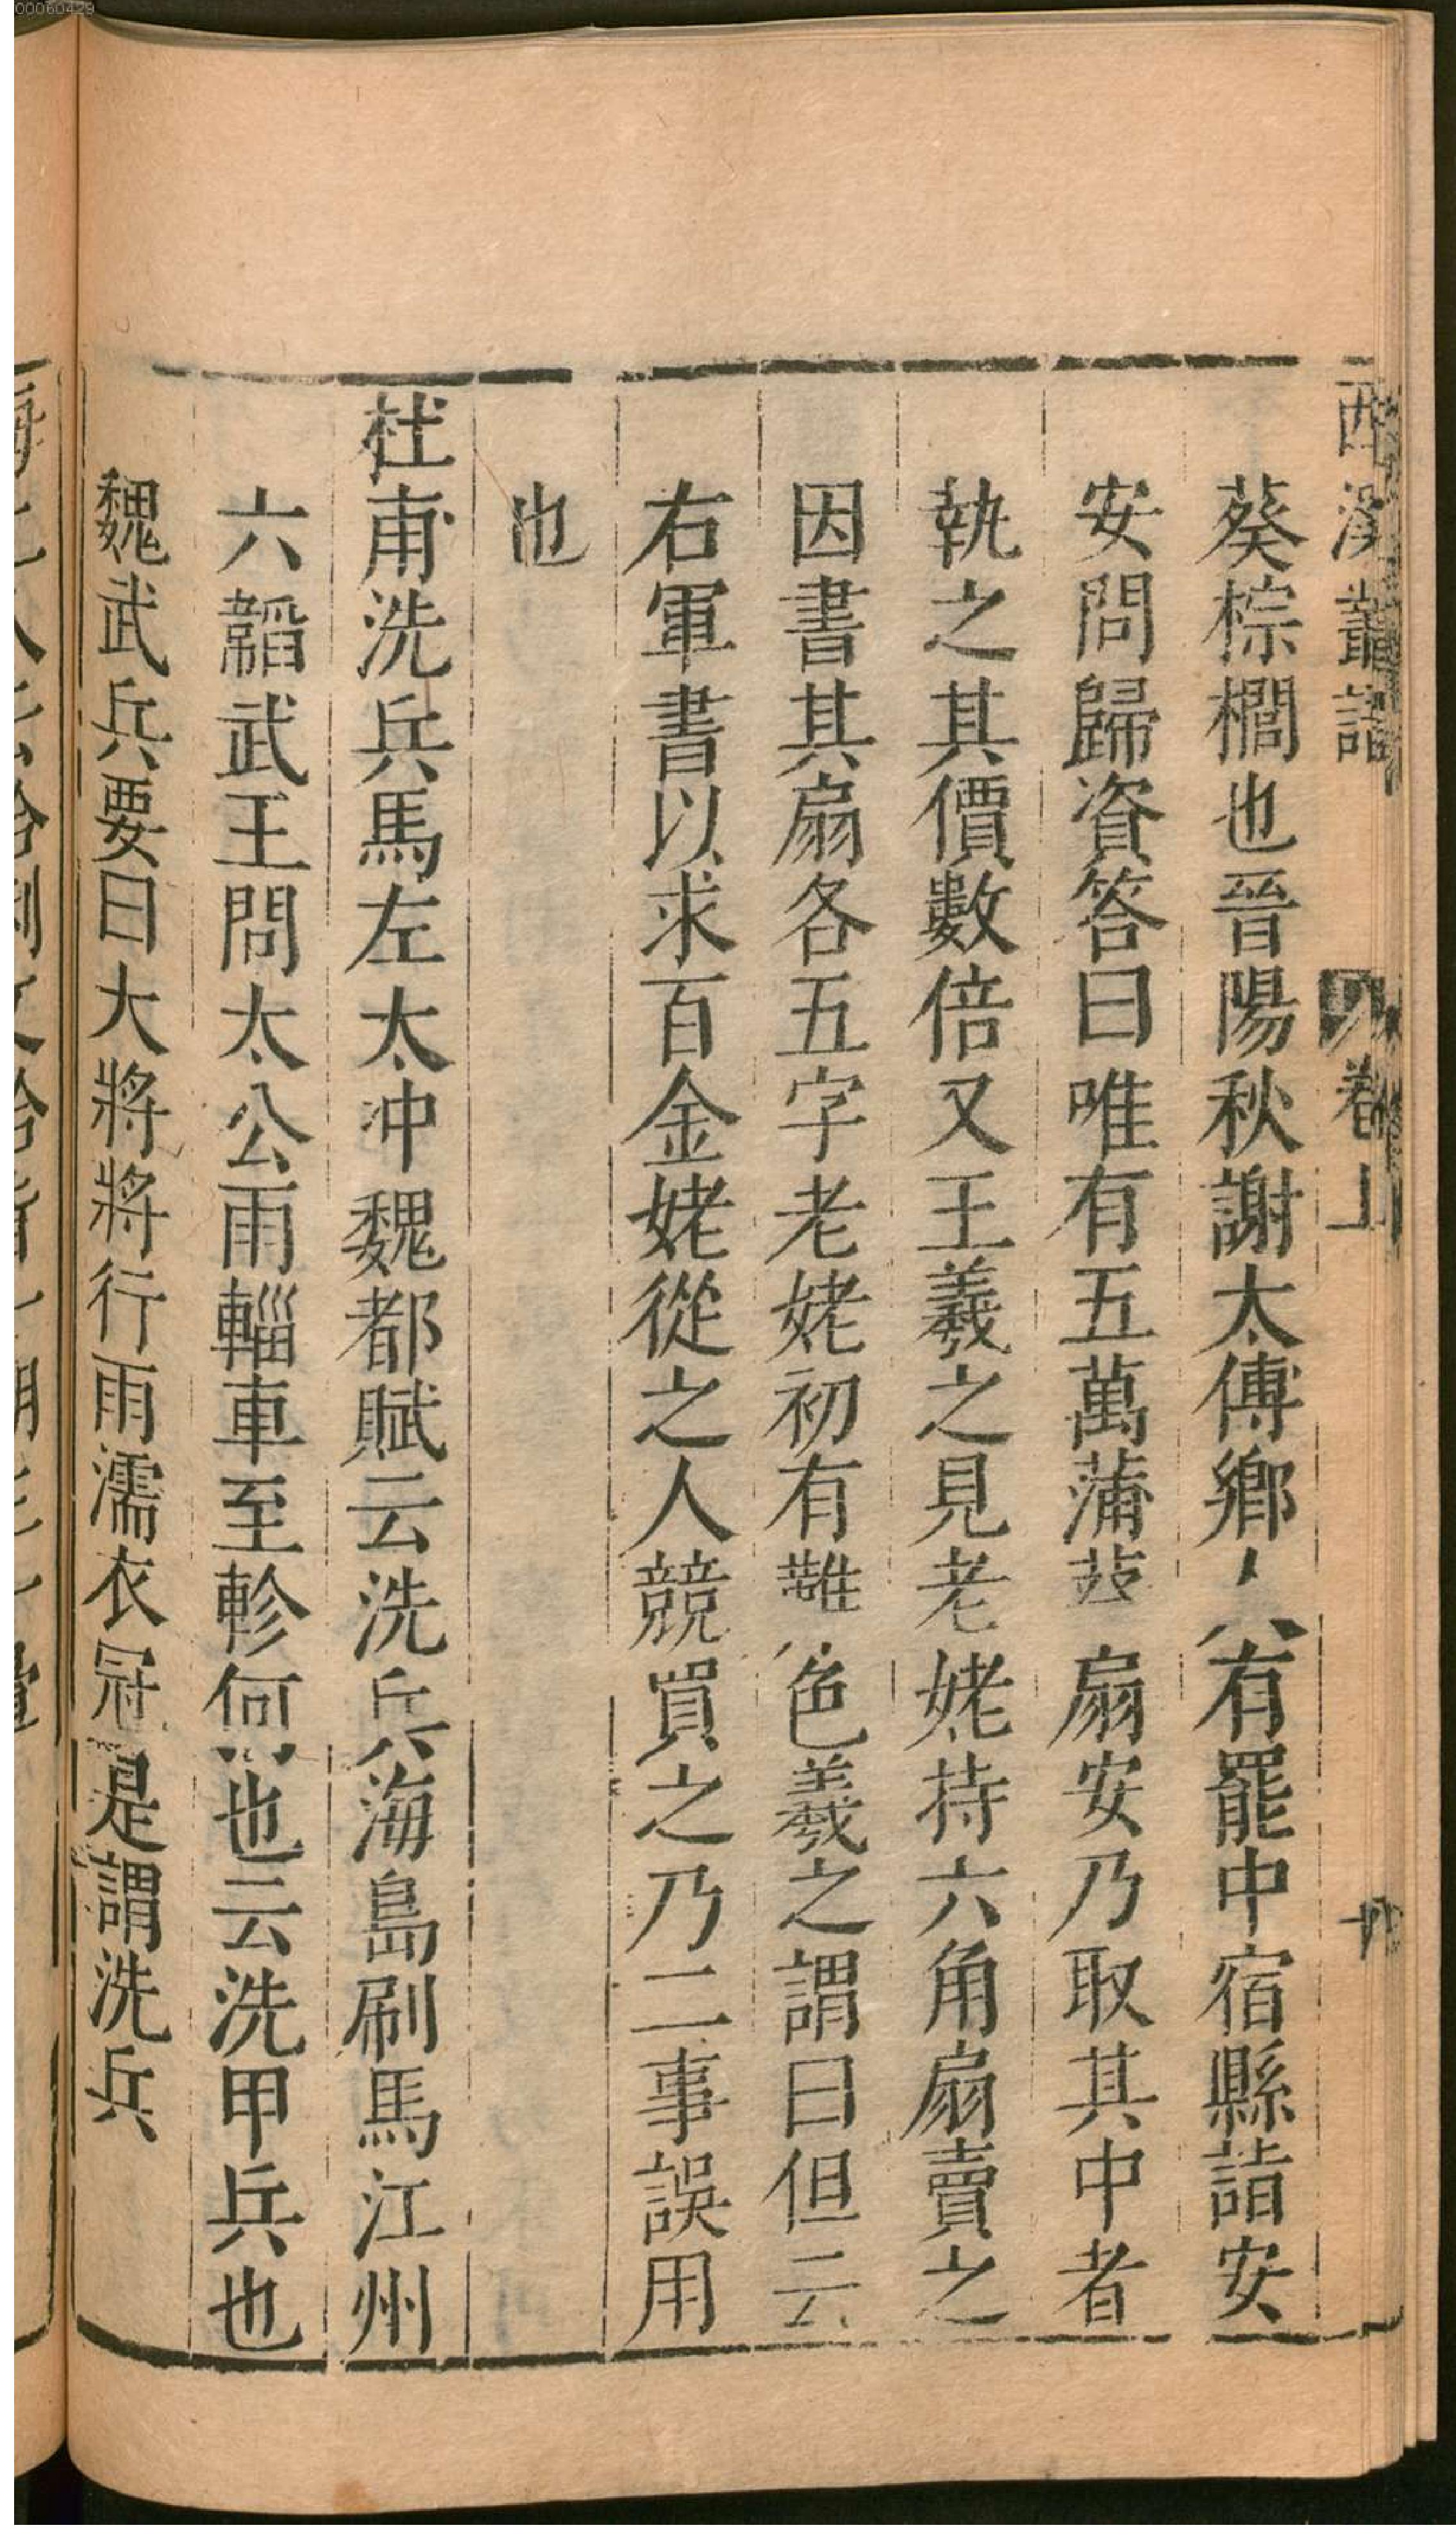 00060429
西溪叢語 卷上 十
葵棕櫚也晉陽秋謝太傅鄉人有罷中宿縣詣安
安問歸資答曰唯有五萬蒲葵扇安乃取其中者
執之其價數倍又王羲之見老姥持六角扇賣之
因書其扇各五字老姥初有難色羲之謂曰但云
右軍書以求百金姥從之人競買之乃二事誤用
也
杜甫洗兵馬左太冲魏都賦云洗兵海島刷馬江州
六韜武王問太公雨輜車至軫何也云洗甲兵也
魏武兵要曰大將將行雨濡衣冠是謂洗兵